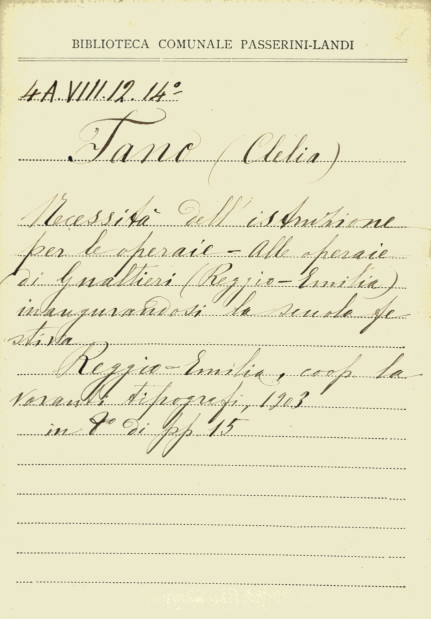 BIBLIOTECA COMUNALE PASSERINI-LANDI
4 A. VIII. 12. 14°
Fano (Clelia)
Necessità dell'istruzione
per le operaie - Alle operaie
di Gualtieri (Reggio-Emilia)
inaugurandosi la scuola fe-
stiva
Reggio-Emilia, coop la
voranti tipografi, 1903
in 8° di pp 15